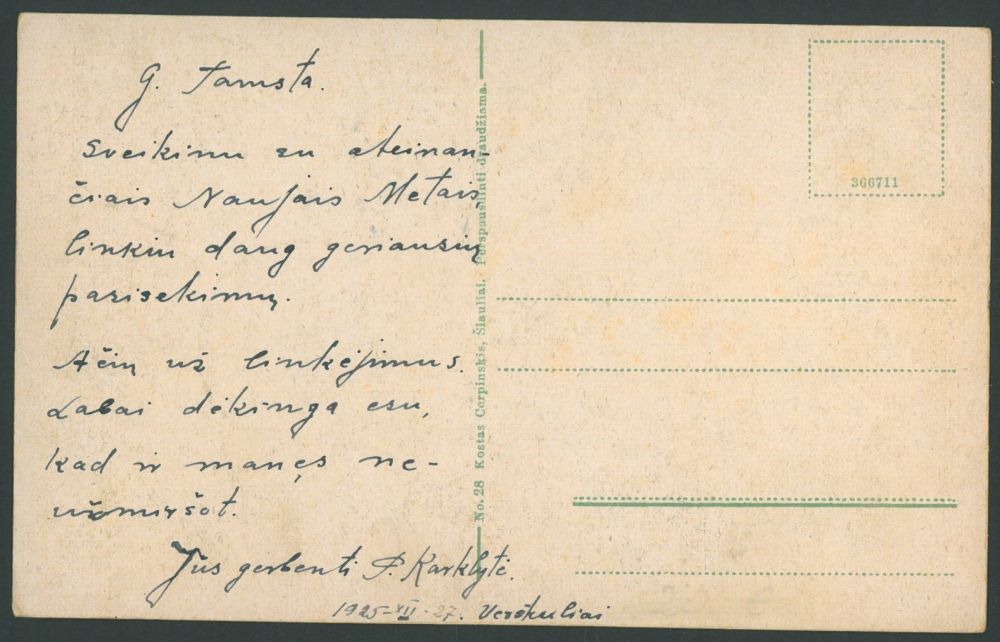 G. Tamsta.
Sveikinu su ateinan-
čiais Naujais Metais,
linkiu daug geriausių
pasisekimų.
Ačių už linkėjimus.
Labai dėkinga esu,
kad ir manęs ne-
užmiršot.
Jus gerbenti P. Karklytė.
1925-XII-27. Verškuliai
No. 28 Kostas Cerpinskis, Šiauliai. Perspausdinti draudžiama.
366711